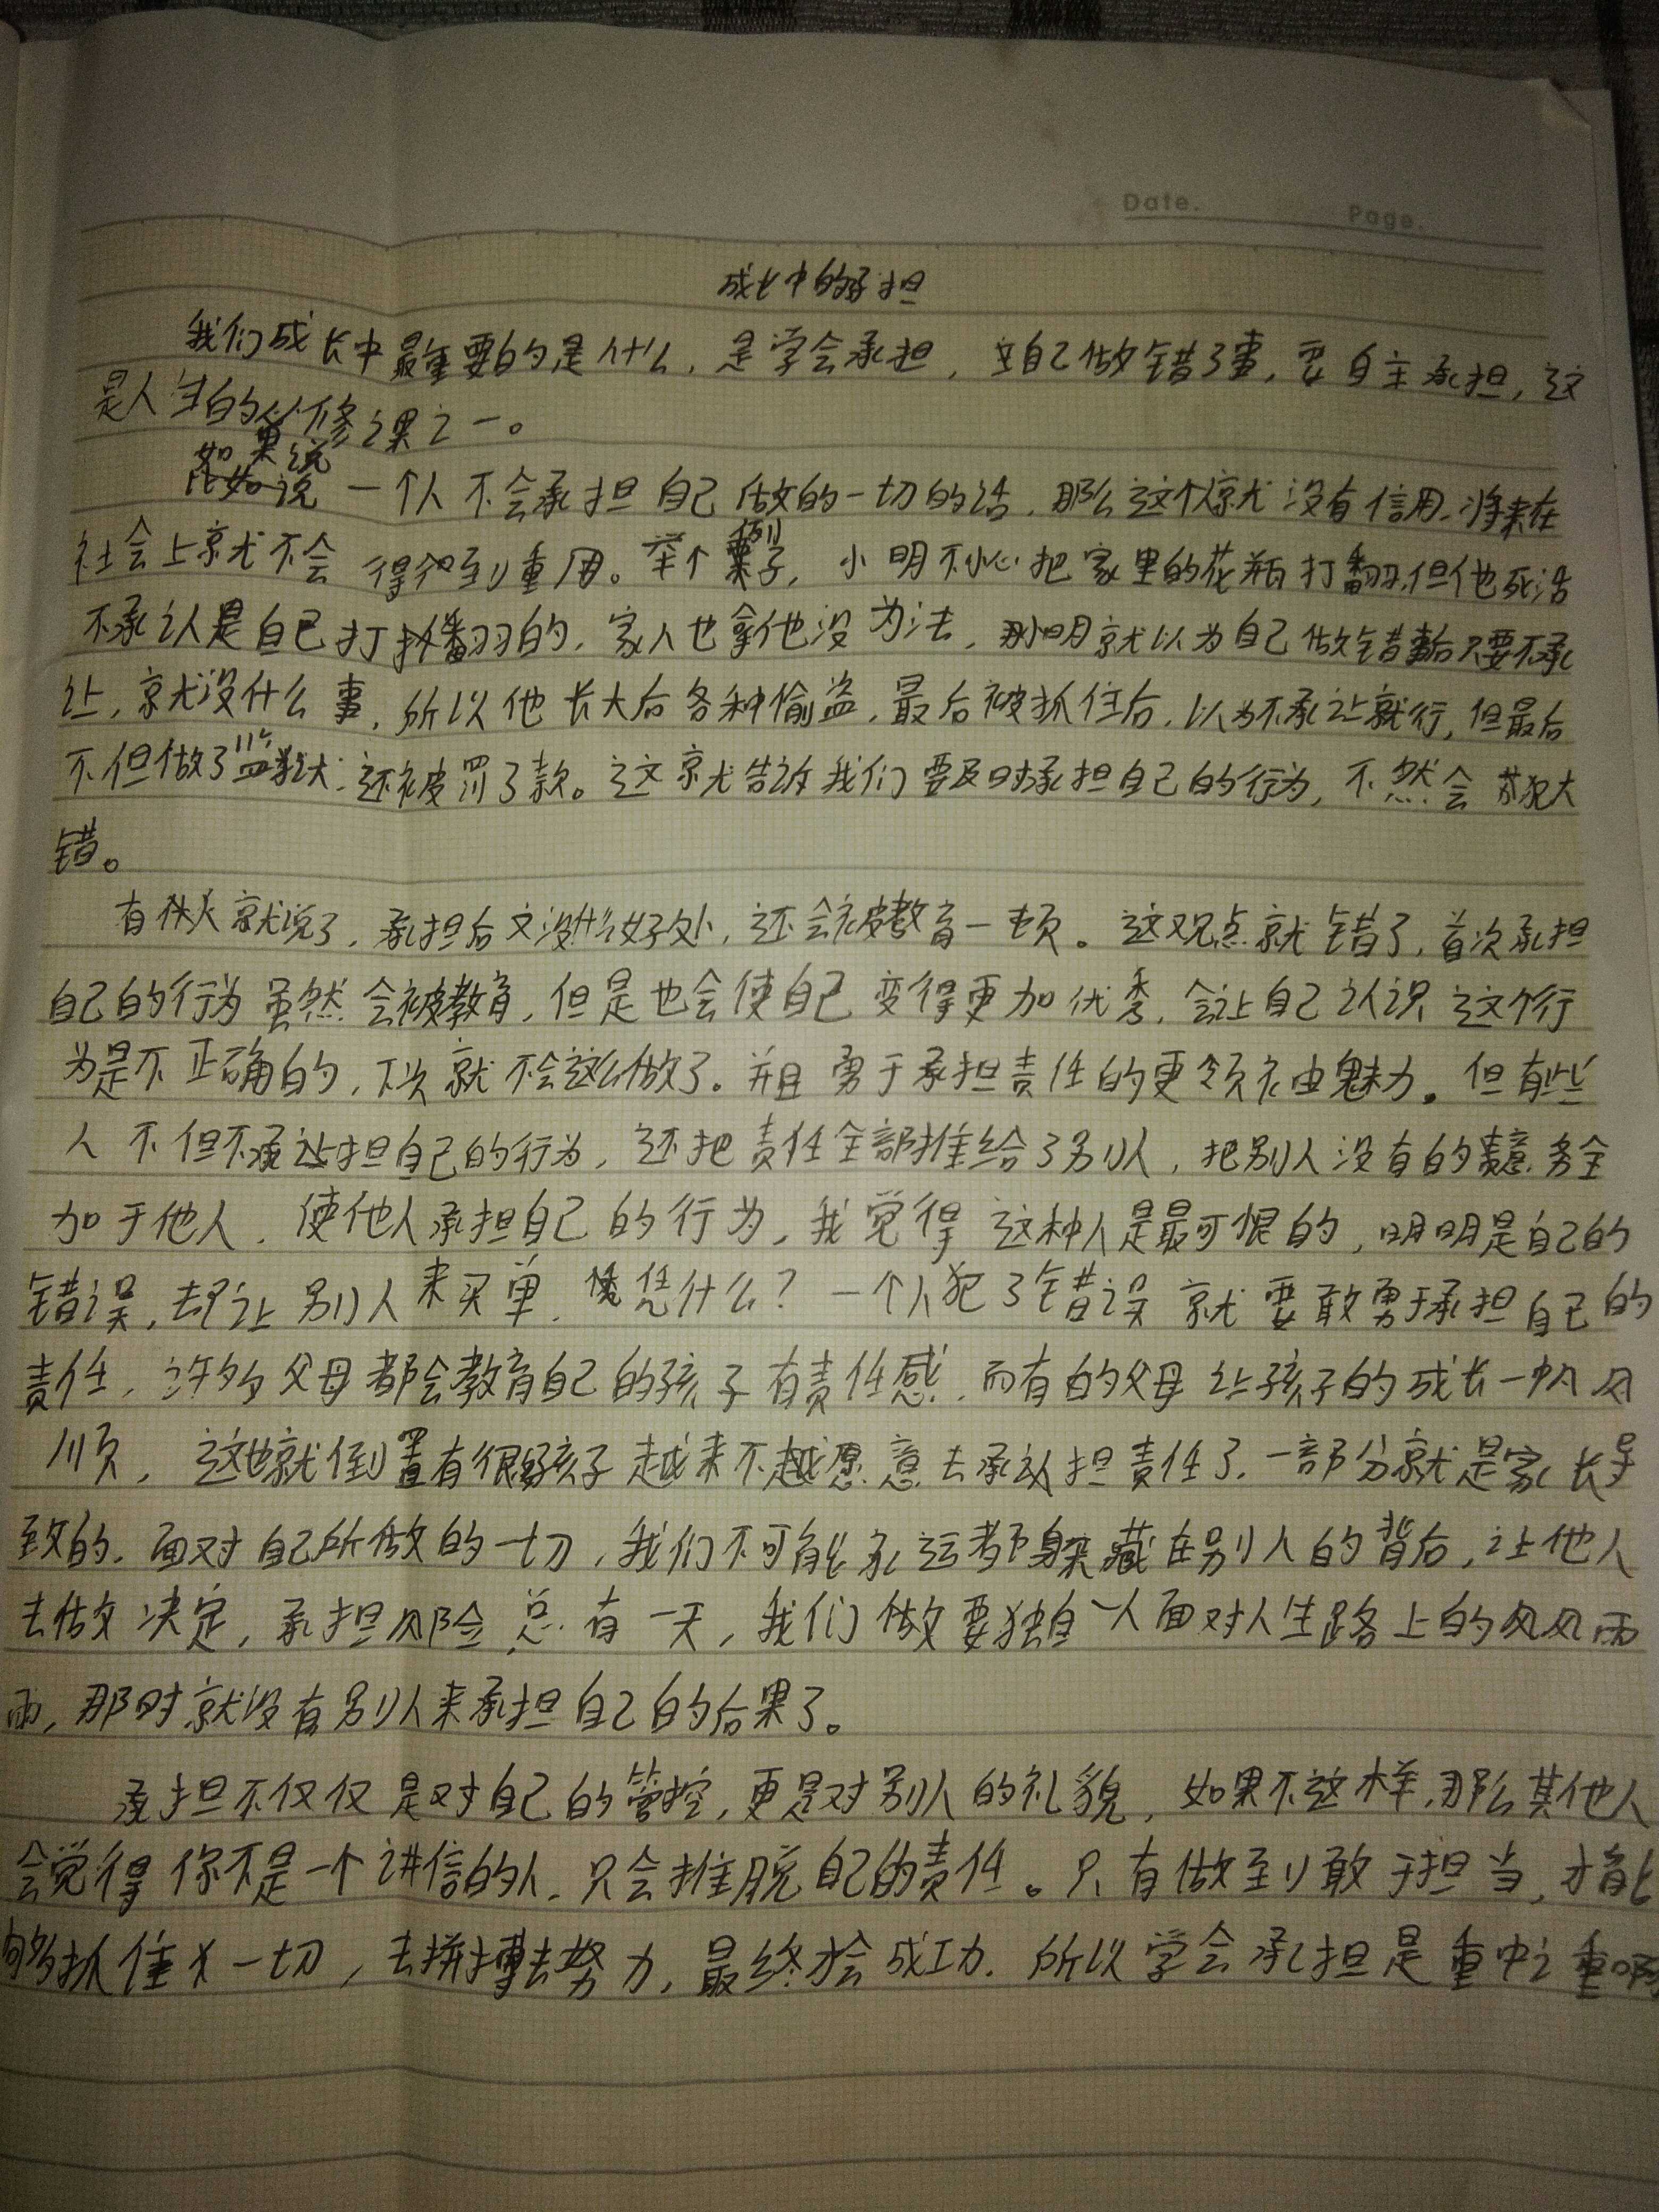 Date.
Page.
成长中的承担
我们成长中最重要的是什么,是学会承担,自己做错了事,要自主承担,这
是人生的必修课之一。
如果说
比如说一个人不会承担自己做的一切的话,那么这个人就没有信用,将来在
社会上就不会得到重用。举个例子,小明不小心把家里的花瓶打翻,但他死活
不承认是自己打翻的,家人也拿他没办法,小明就以为自己做错事后只要不承
让,就没什么事,所以他长大后各种偷盗,最后被抓住后,以为不承让就行,但最后
不但做了监狱,还被罚了款。这就告诉我们要及时承担自己的行为,不然会犯大
错。
有人就说了,承担后又没什么好处,还会被教育一顿。这观点就错了,首次承担
自己的行为虽然会被教育,但是也会使自己变得更加优秀,会让自己认识这个行
为是不正确的,下次就不会这么做了。并且勇于承担责任的更须有由魅力。但有些
人不但不承担自己的行为,还把责任全部推给了别人,把别人没有的责务全
加于他人,使他人承担自己的行为,我觉得这种人是最可恨的,明明是自己的
错误,却让别人来买单,凭什么?一个人犯了错误就要敢勇于承担自己的
责任,许多父母都会教育自己的孩子有责任感,而有的父母让孩子的成长一帆风
顺,这也就倒置有很多孩子越来不越愿意去承担责任了,一部分就是家长导
致的。面对自己所做的一切,我们不可能永远都躲藏在别人的背后,让他人
去做决定,承担风险,总有一天,我们做要独自一人面对人生路上的风风雨
雨,那时就没有别人来承担自己的后果了。
承担不仅仅是对自己的管控,更是对别人的礼貌,如果不这样,那么其他人
会觉得你不是一个讲信的人,只会推脱自己的责任。只有做到敢于担当,才能
够抓住一切,去拼搏去努力,最终才会成功。所以学会承担是重中之重啊